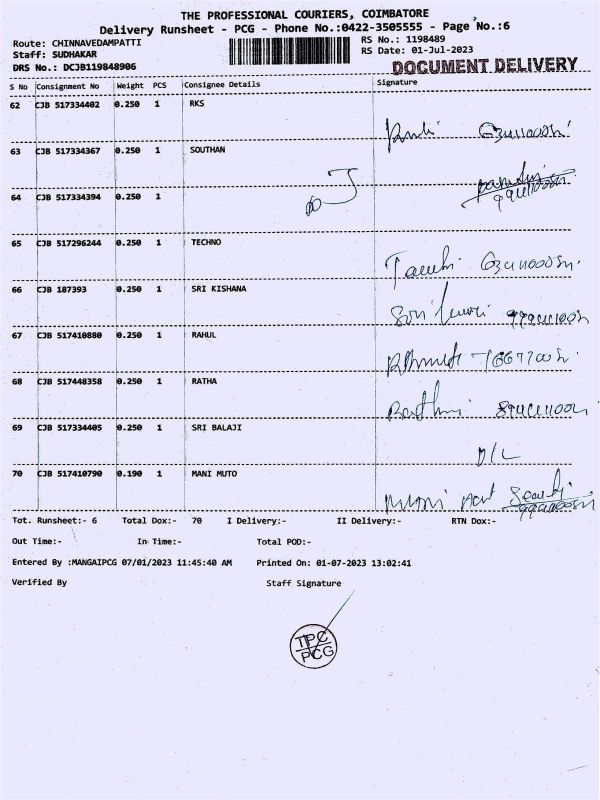 THE PROFESSIONAL COURIERS, COIMBATORE
Delivery Runsheet - PCG - Phone No.:0422-3505555 - Page No.:6
Route: CHINNAVEDAMPATTI
Staff: SUDHAKAR
DRS No.: DCJB119848906
RS No.: 1198489
RS Date: 01-Jul-2023
DOCUMENT DELIVERY
S No Consignment No Weight PCS Consignee Details Signature
62 CJB 517334402 0.250 1 RKS
63 CJB 517334367 0.250 1 SOUTHAN
64 CJB 517334394 0.250 1
65 CJB 517296244 0.250 1 TECHNO
66 CJB 187393 0.250 1 SRI KISHANA
67 CJB 517410880 0.250 1 RAHUL
68 CJB 517448358 0.250 1 RATHA
69 CJB 517334405 0.250 1 SRI BALAJI
D/L
70 CJB 517410790 0.190 1 MANI MUTO
Tot. Runsheet:- 6 Total Dox:- 70 I Delivery:- II Delivery:- RTN Dox:-
Out Time:- In Time:- Total POD:-
Entered By :MANGAIPCG 07/01/2023 11:45:40 AM Printed On: 01-07-2023 13:02:41
Verified By Staff Signature
TPC
PCG